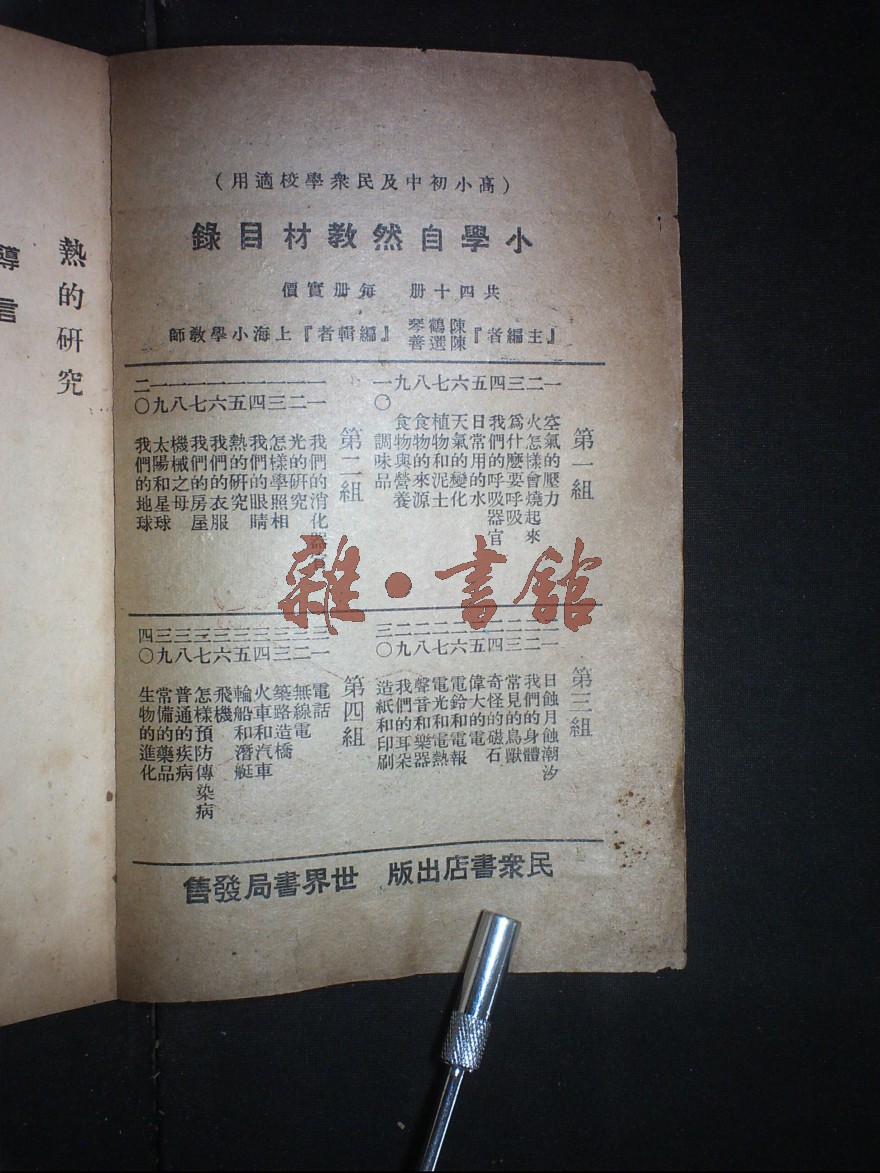 (高小初中及民衆學校適用)
小學自然教材目錄
共四十册 每册實價
『主編者』陳鶴琴 陳選善 『編輯者』上海小學教師
第一組
一 空氣的壓力
二 火怎樣會燒起來
三 爲什麽要呼吸
四 我們的呼吸器官
五 日常用的水
六 天氣的變化
七 植物和泥土
八 食物的來源
九 食物與營養
一〇 調味品
第二組
一一 我們的消化器
一二 光的研究
一三 怎樣學照相
一四 我們的眼睛
一五 熱的研究
一六 我們的衣服
一七 我們的房屋
一八 機械之母
一九 太陽和星球
二〇 我們的地球
第三組
二一 日蝕月蝕潮汐
二二 我們的身體
二三 常見的鳥獸
二四 奇怪的磁石
二五 偉大的電
二六 電鈴和電報
二七 電光和電熱
二八 聲音和樂器
二九 我們的耳朵
三〇 造紙和印刷
第四組
三一 電話
三二 無線電
三三 築路造橋
三四 火車和汽車
三五 輪船和潛艇
三六 飛機
三七 怎樣預防傳染病
三八 普通的疾病
三九 常備的藥品
四〇 生物的進化
民衆書店出版 世界書局發售
熱的研究
導言
雜·書館